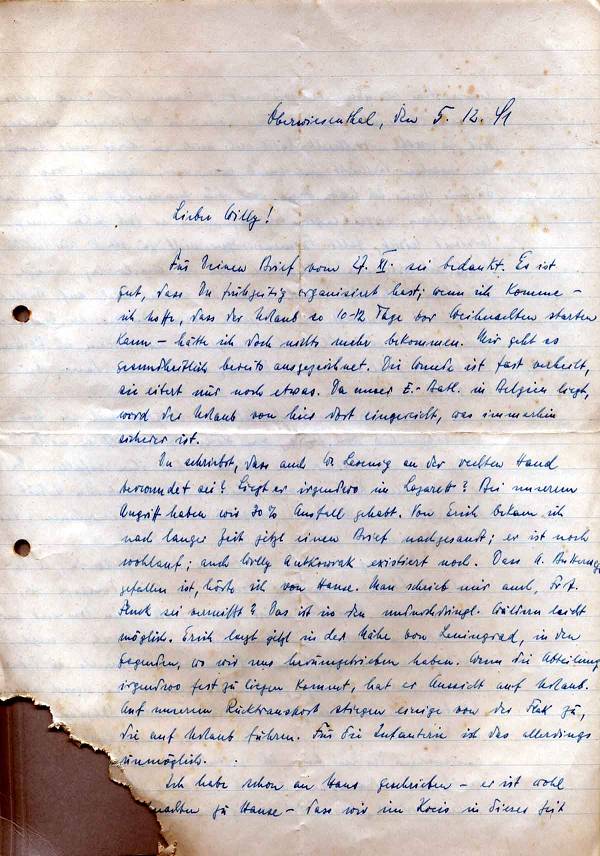 Oberwiesenthal, den 5. 12. 41
Lieber Willy!
Für Deinen Brief vom 27. XI. sei bedankt. Es ist
gut, dass Du frühzeitig organisiert hast; wenn ich komme –
ich hoffe, dass der Urlaub so 10-12 Tage vor Weihnachten starten
kann – hätte ich doch nichts mehr bekommen. Mir geht es
gesundheitlich bereits ausgezeichnet. Die Wunde ist fast verheilt,
sie eitert nur noch etwas. Da unser E.-Batl. in Belgien liegt,
word der Urlaub von hier dort eingereicht, was immerhin
sicherer ist.
Du schriebst, dass auch W. an der rechten Hand
verwundet sei? Liegt er irgendwo im Lazarett? Bei unserem
Angriff haben wir 70% Ausfall gehabt. Von Erich bekam ich
nach langer Zeit jetzt einen Brief nachgesandt; er ist noch
wohlauf; auch Willy Antkowiak existiert noch. Dass A.
gefallen ist, hörte ich von Hause. Man schrieb mir auch,
sei vermißt? Das ist in den undurchdringl. Wäldern leicht
möglich. Erich liegt jetzt in der Nähe von Leningrad, in den
Gegenden, wo wir uns herumgetrieben haben. Wenn die Abteilung
irgendwo fest zu liegen kommt, hat er Aussicht auf Urlaub.
Auf unserem Rücktransport stiegen einige von der Flak zu,
die auf Urlaub fuhren. Für die Infanterie ist das allerdings
unmöglich.
Ich habe schon an Hans geschrieben – er ist wohl
zu Hause – dass wir im Kreis in dieser Zeit